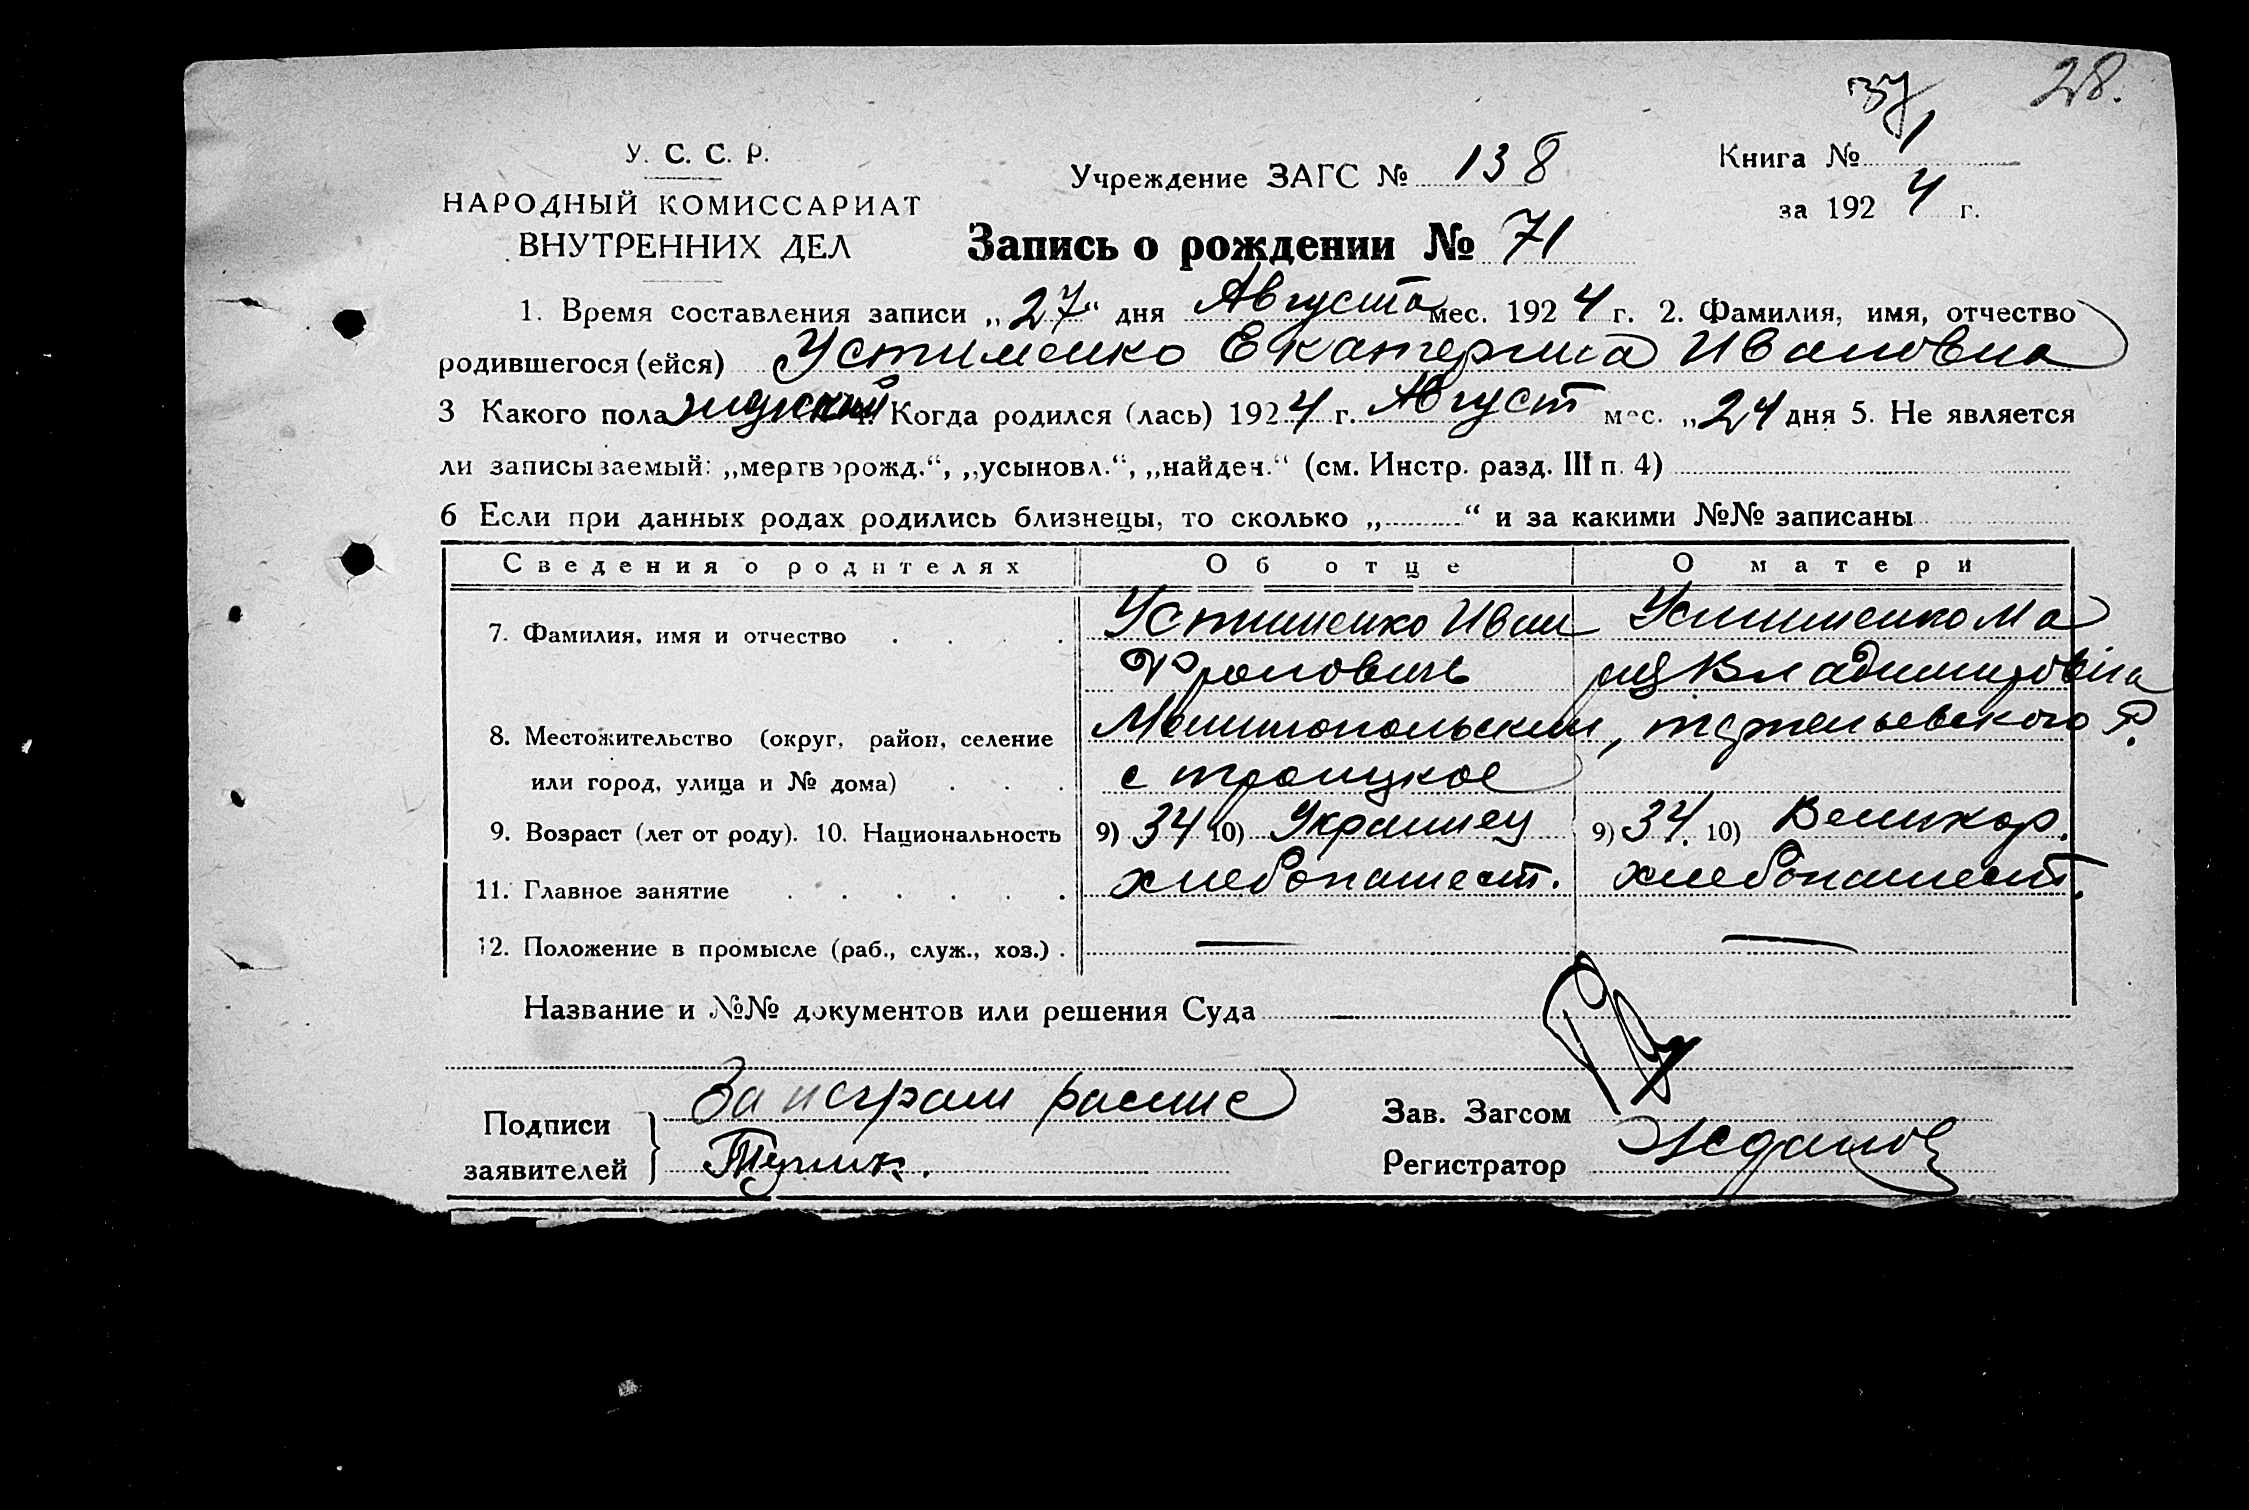 28.
37/1
У. С. С. Р.
НАРОДНЫЙ КОМИССАРИАТ
ВНУТРЕННИХ ДЕЛ
Учреждение ЗАГС № 138
Книга №
за 1924 г.
Запись о рождении № 71
1. Время составления записи „27“ дня Августа мес. 1924 г. 2. Фамилия, имя, отчество
родившегося (ейся) Устименко Екатерина Ивановна
3 Какого пола 4. Когда родился (лась) 1924 г. Август мес. „24 дня 5. Не является
ли записываемый: „мертворожд.“, „усыновл.“, „найден.“ (см. Инстр. разд. III п. 4)
6 Если при данных родах родились близнецы, то сколько „ “ и за какими №№ записаны
Сведения о родителях Об отце О матери
7. Фамилия, имя и отчество Устименко Иван Устименко Ма
Фролович рия Владимировна
8. Местожительство (округ, район, селение Мелитопольский, Р.
или город, улица и № дома) с троицкое
9. Возраст (лет от роду). 10. Национальность 9) 34 10) Украинец 9) 34. 10) Великор.
11. Главное занятие хлебопашест. хлебопашест.
12. Положение в промысле (раб., служ., хоз.) — —
Название и №№ документов или решения Суда —
Подписи
заявителей
За неграм распис
Зав. Загсом
Регистратор